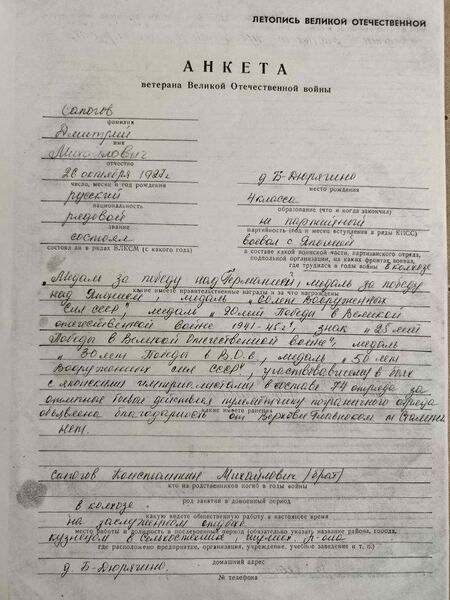 ЛЕТОПИСЬ ВЕЛИКОЙ ОТЕЧЕСТВЕННОЙ
АНКЕТА
ветерана Великой Отечественной войны
Сапогов
фамилия
Дмитрий
имя
Михайлович
отчество
26 октября 1927г
число, месяц и год рождения
д. Б-Дюрягино
место рождения
русский
национальность
4 класса
образование (что и когда закончил)
рядовой
звание
не партийный
партийность (год и месяц вступления в ряды КПСС)
состоял
состоял ли в рядах ВЛКСМ (с какого года)
воевал с Японией
в составе какой воинской части, партизанского отряда,
подпольной организации, на каких фронтах воевал,
где трудился в годы войны в колхозе
"Медаль за победу над Германией, медаль за победу
над Японией медаль
какие имеете правительственные награды и за что награждены
Вооруженных
сил СССР", медаль "20 лет Победы в Великой
отечественной войне 1941-45г", знак "25 лет
Победы в Великой Отечественной войне", медаль
"30 лет Победы в В.О.в, медаль "50 лет
Вооруженных сил СССР", участвовавшему в боях
с японскими империалистами в составе 74 отряда за
отличные боевые действия пулеметчику пограничного отряда
объявлена благодарность от
какие имеете ранения
нет.
Сапогов Константин Михайлович (брат)
кто из родственников погиб в годы войны
в колхозе
род занятий в довоенный период
какую ведете общественную работу в настоящее время
на заслуженном отдыхе
место работы и должность в послевоенный период (обязательно указать название района, города,
кузнецом в Сельхозтехнике, р-она
где расположено предприятие, организация, учреждение, учебное заведение и т. п.)
д. Б-Дюрягино
домашний адрес
№ телефона